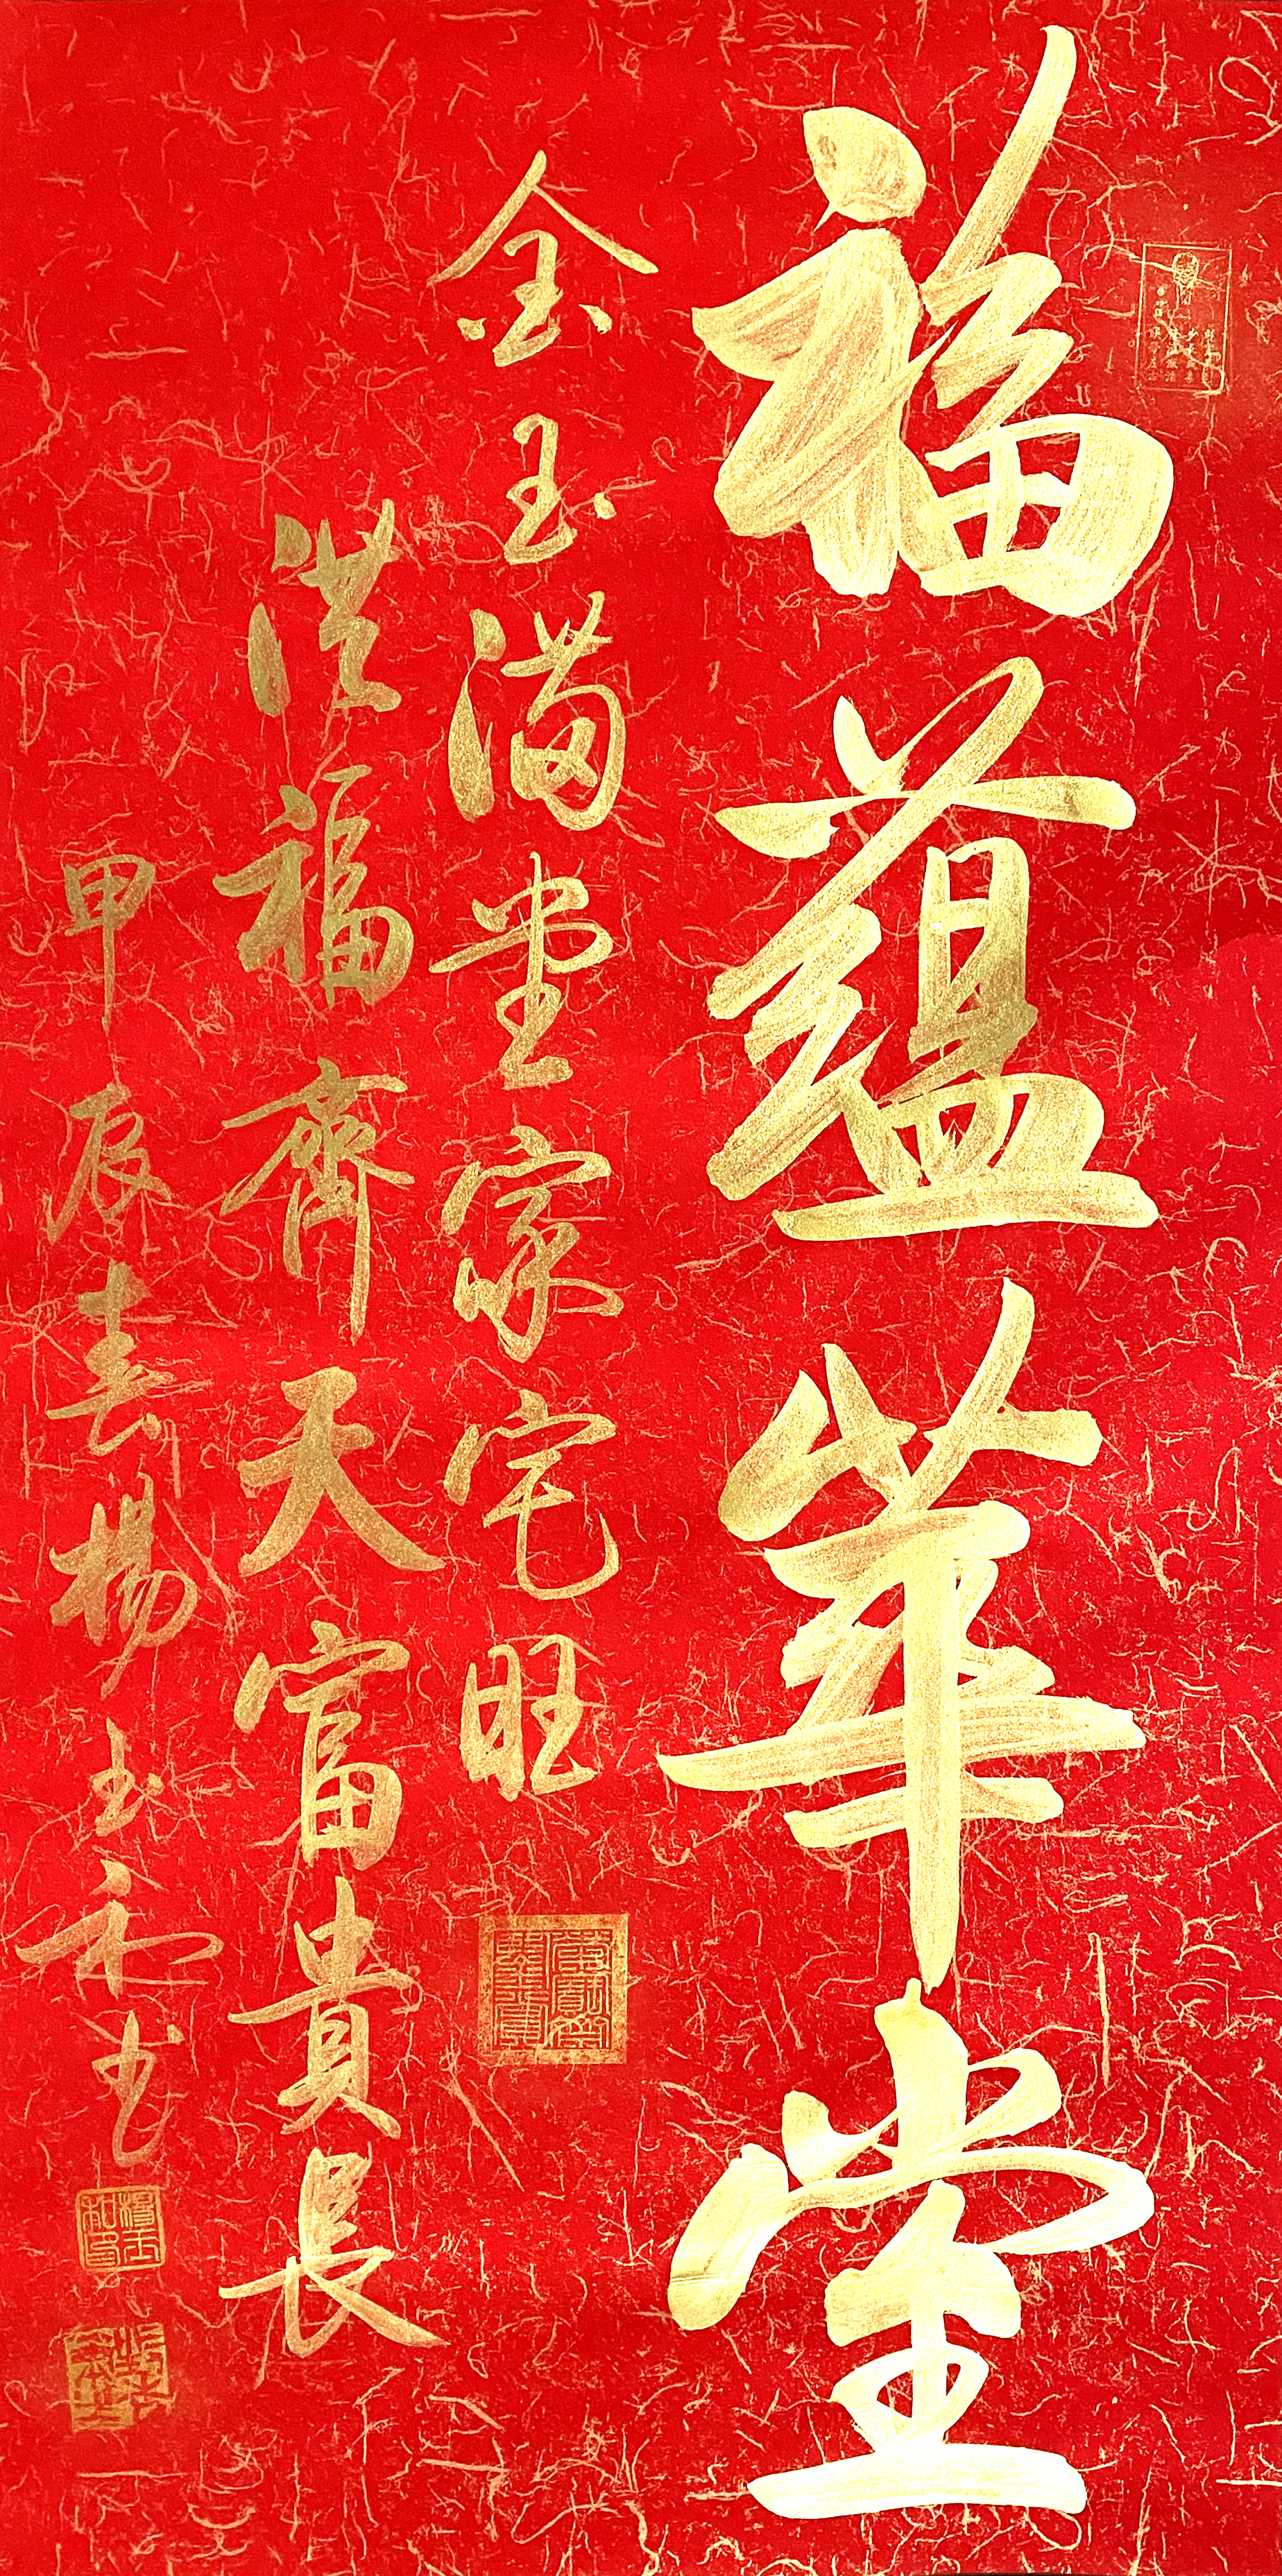 福蘊華堂
金玉滿堂家宅旺
洪福齊天富貴長
甲辰春楊玉和書